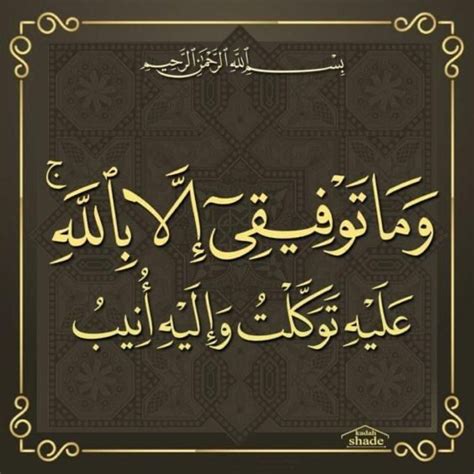 بِسْمِ ٱللَّهِ ٱلرَّحْمَٰنِ ٱلرَّحِيمِ
وَمَا تَوْفِيقِىٓ إِلَّا بِٱللَّهِ ۚ
عَلَيْهِ تَوَكَّلْتُ وَإِلَيْهِ أُنِيبُ
kadah
shade